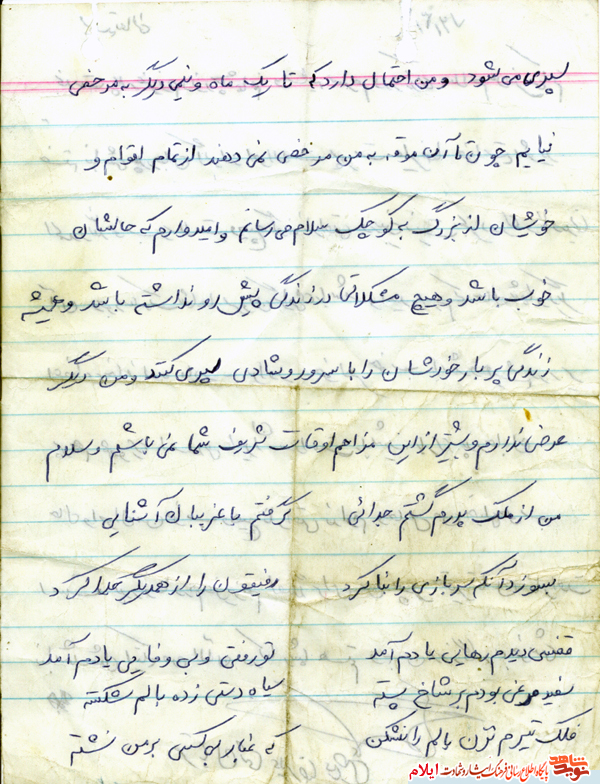 سپری می شود و من احتمال دارد که تا یک ماه و نیمی دیگر به مرخصی
نیایم چون تا آن موقع به من مرخصی نمی دهند از تمام اقوام و
خوشیان از بزرگ به کوچک سلام می رسانم و امیدوارم که حالشان
خوب باشد و هیچ مشکلاتی در زندگی پیش رو نداشته باشد و همیشه
زندگی پر بار خودشان را با سرور و شادی سپری کنند و من دیگر
عرضی ندارم و بیشتر از این مزاحم اوقات شریف شما نمی باشم وسلام
من از ملک پدرم گشتم جدائی گرفتم با غریبان آشنایی
بسوزد آنکه سربازی را بنا کرد رفیقون را از همدیگر جدا کرد
قفسی دیدم رهایی یادم آمد تو رفتی و بی وفایی یادم آمد
سفید مرغی بودم بر شاخ پسته سیاه دستی زده بالم شکسته
فلک تیرم نزن بالم را نشکن که غبار بی کسی بر من نشسته
نوید شاهد پایگاه اطلاع رسانی فرهنگ ایثار و شهادت ایلام